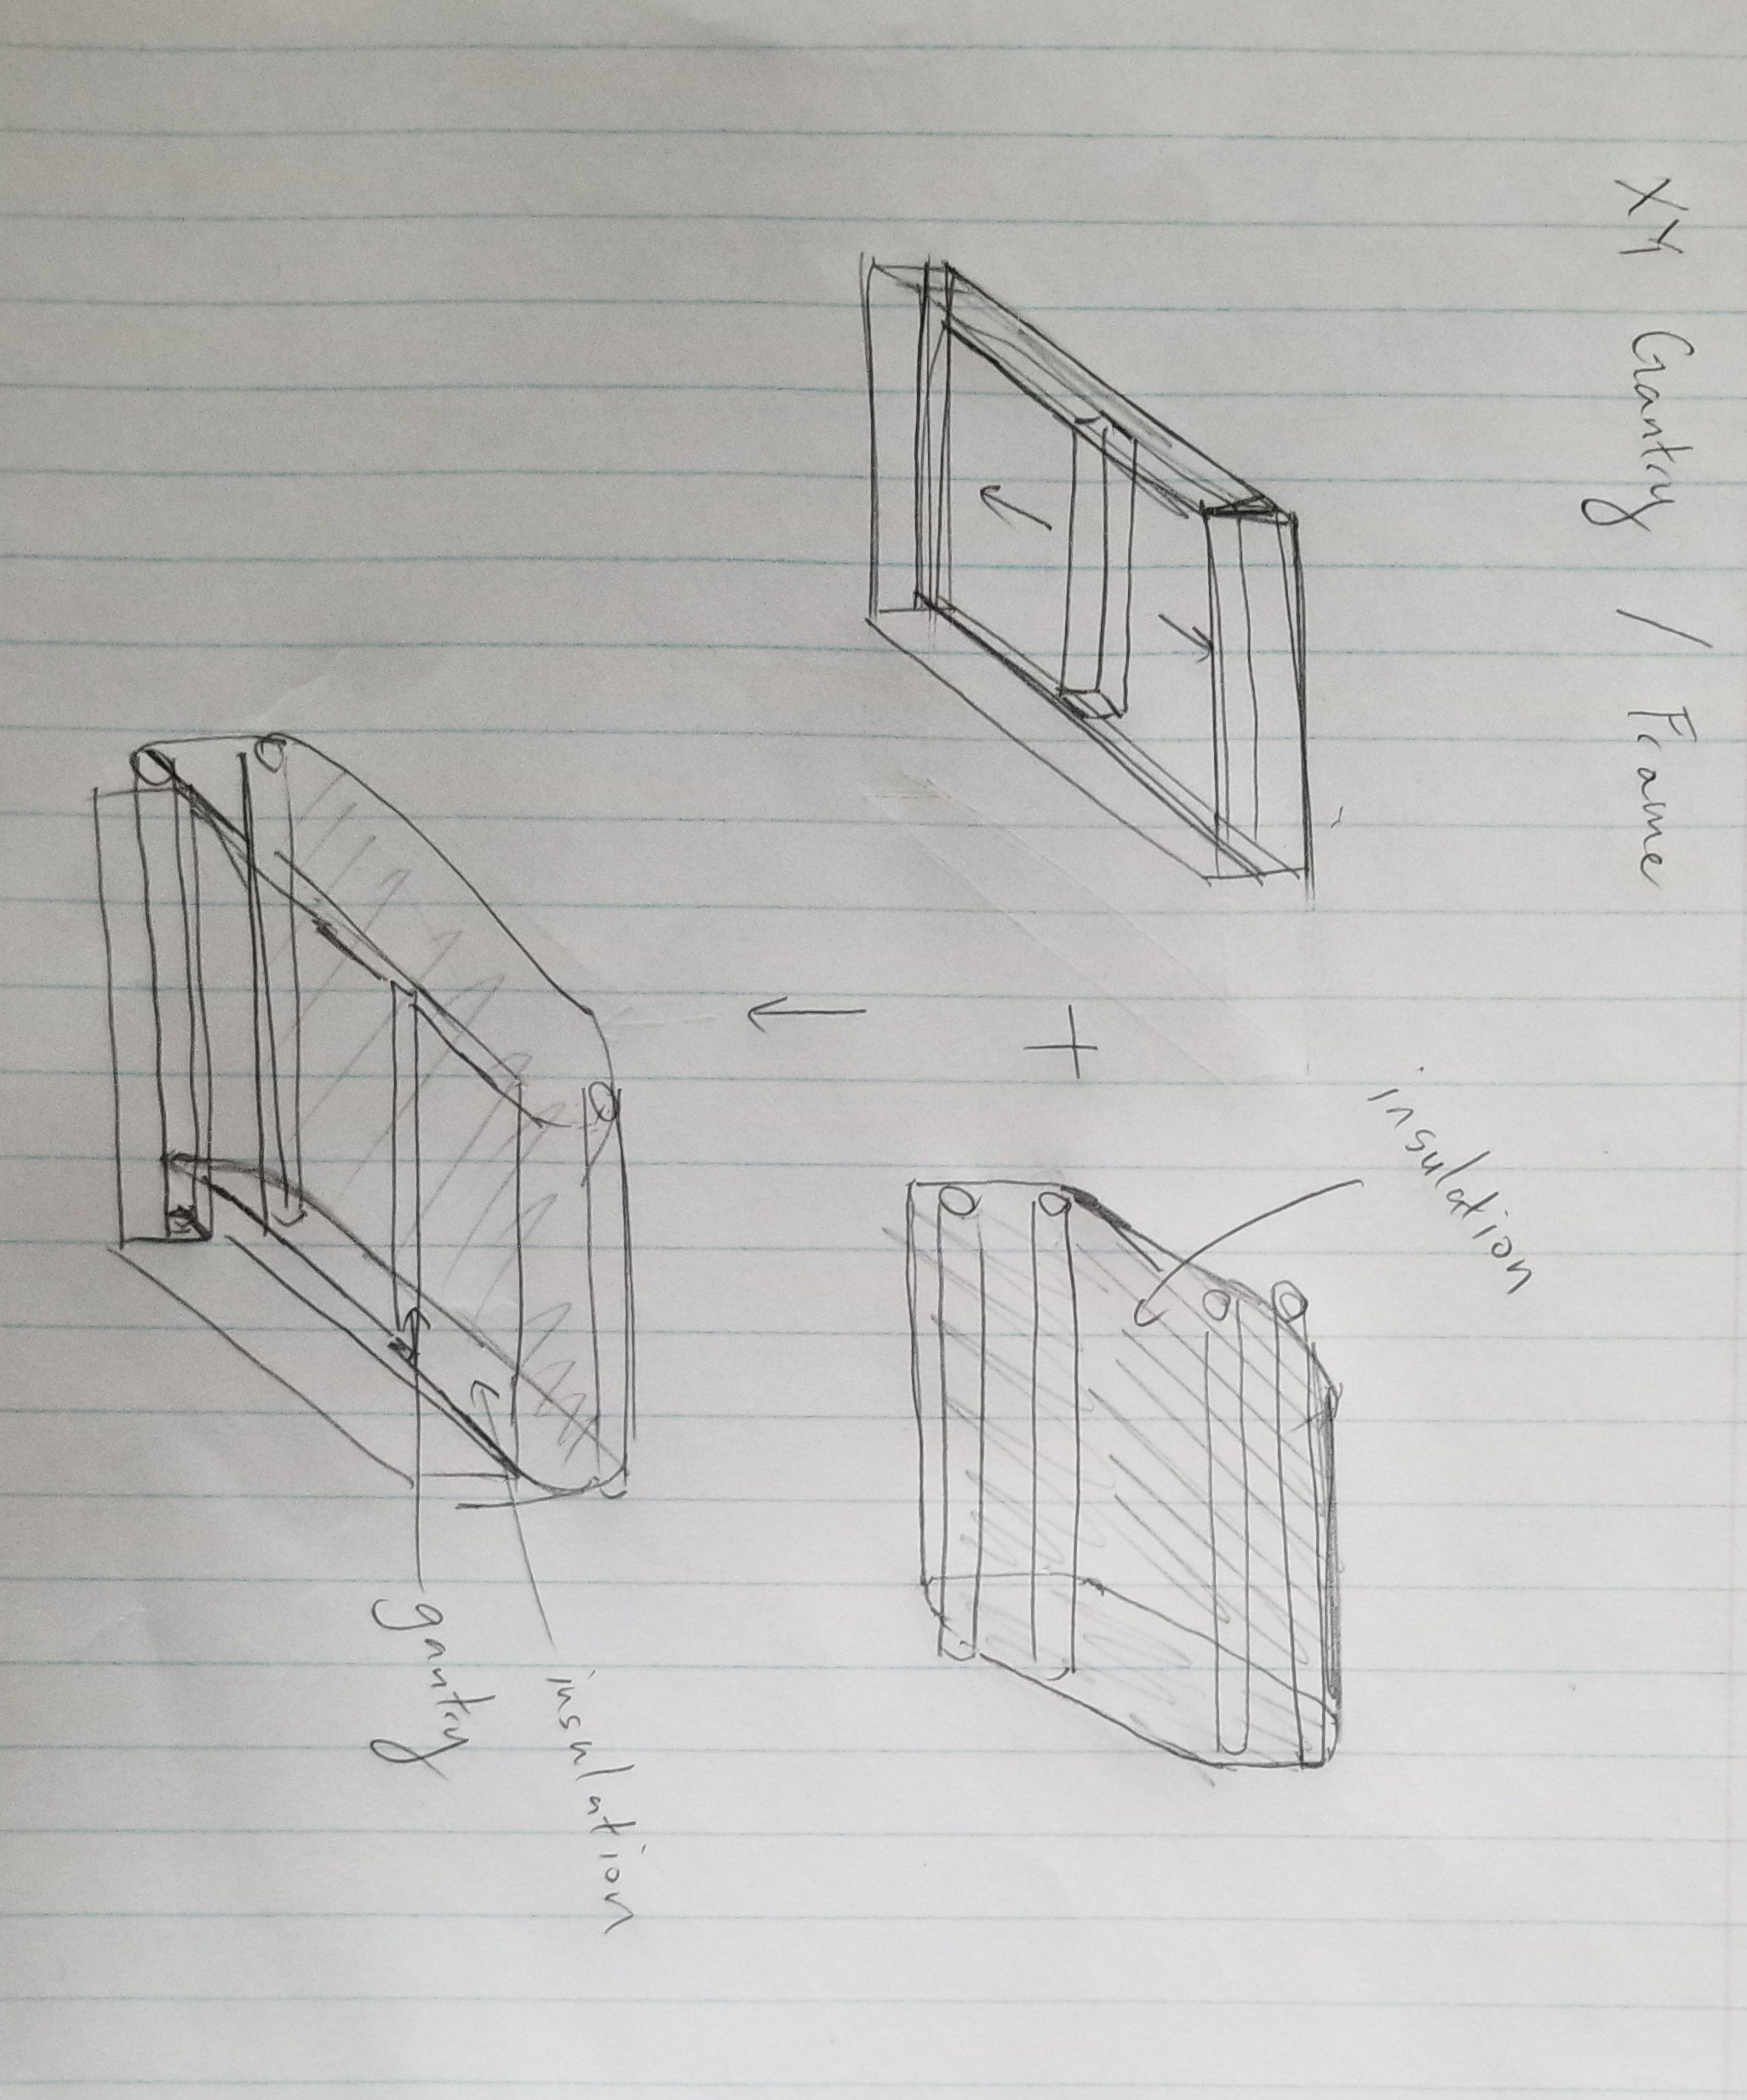 XY Gantry / Frame
insulation
+
insulation
gantry